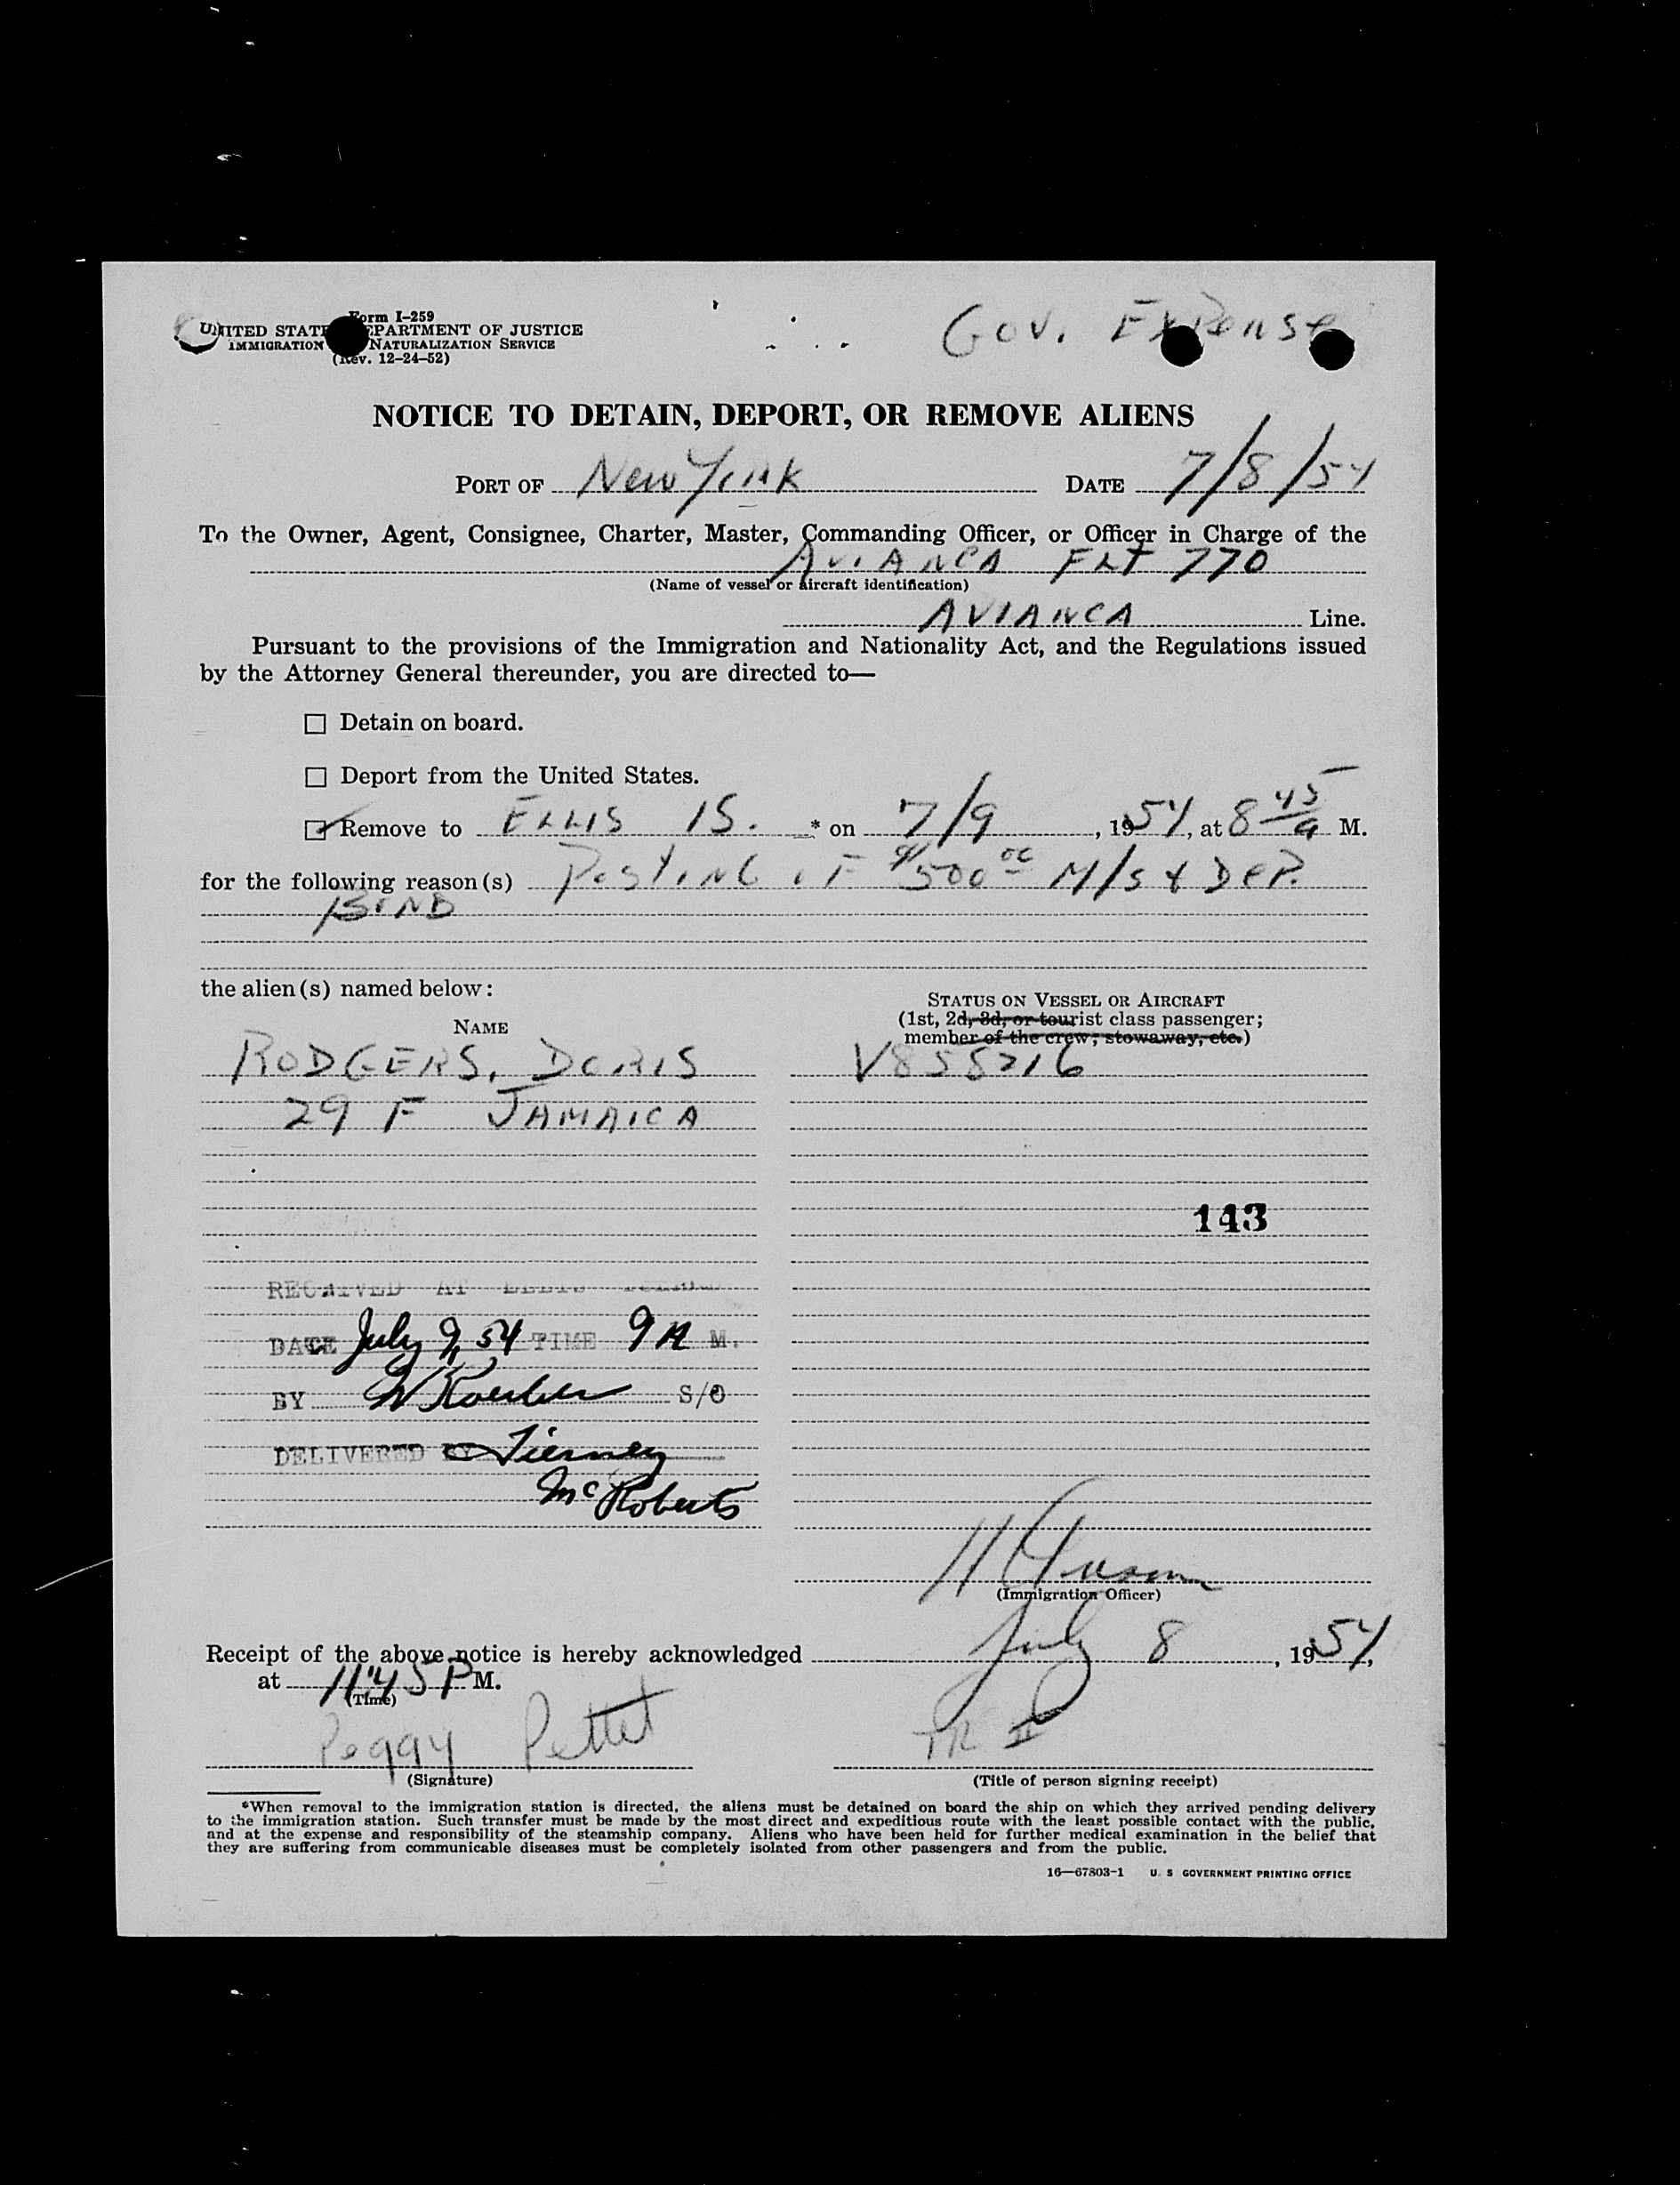 Form I-259
UNITED STATES DEPARTMENT OF JUSTICE
IMMIGRATION NATURALIZATION SERVICE
(Rev. 12-24-52)
Gov. Expense
NOTICE TO DETAIN, DEPORT, OR REMOVE ALIENS
PORT OF New York DATE 7/8/54
To the Owner, Agent, Consignee, Charter, Master, Commanding Officer, or Officer in Charge of the
AVIANCA FLT 770
(Name of vessel or aircraft identification)
AVIANCA Line.
Pursuant to the provisions of the Immigration and Nationality Act, and the Regulations issued
by the Attorney General thereunder, you are directed to—
Detain on board.
Deport from the United States.
Remove to ELLIS IS. * on 7/9, 1954, at 8 45 a M.
for the following reason(s) POSTING OF $500 00 M/S & DEP.
BOND
the alien(s) named below:
STATUS ON VESSEL OR AIRCRAFT
(1st, 2d, 3d, or tourist class passenger;
member of the crew; stowaway, etc.)
NAME
RODGERS, DORIS V855216
29 F JAMAICA
143
RECEIVED AT ELLIS ISLAND
DATE July 9, 54 TIME 9 A M.
BY S/O
DELIVERED BY Tierney
McRoberts
(Immigration Officer)
Receipt of the above notice is hereby acknowledged July 8, 1954,
at 11:45 P M.
(Time)
Peggy Pettet TR II
(Signature) (Title of person signing receipt)
*When removal to the immigration station is directed, the aliens must be detained on board the ship on which they arrived pending delivery
to the immigration station. Such transfer must be made by the most direct and expeditious route with the least possible contact with the public,
and at the expense and responsibility of the steamship company. Aliens who have been held for further medical examination in the belief that
they are suffering from communicable diseases must be completely isolated from other passengers and from the public.
16—67803-1 U. S GOVERNMENT PRINTING OFFICE